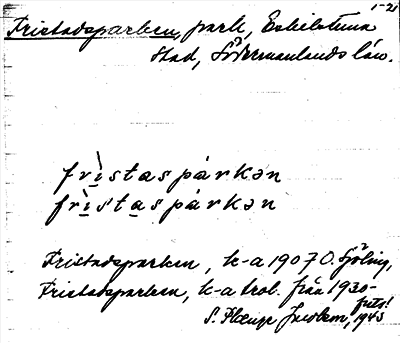 1-21
Fristadsparken, park, Eskilstuna
stad, Södermanlands län.
frìstaspárkən
frìstaspárkən
Fristadsparken, k-a 1907 O. Sjöling,
Fristadsparken, k-a trol. från 1930-
S. 1943